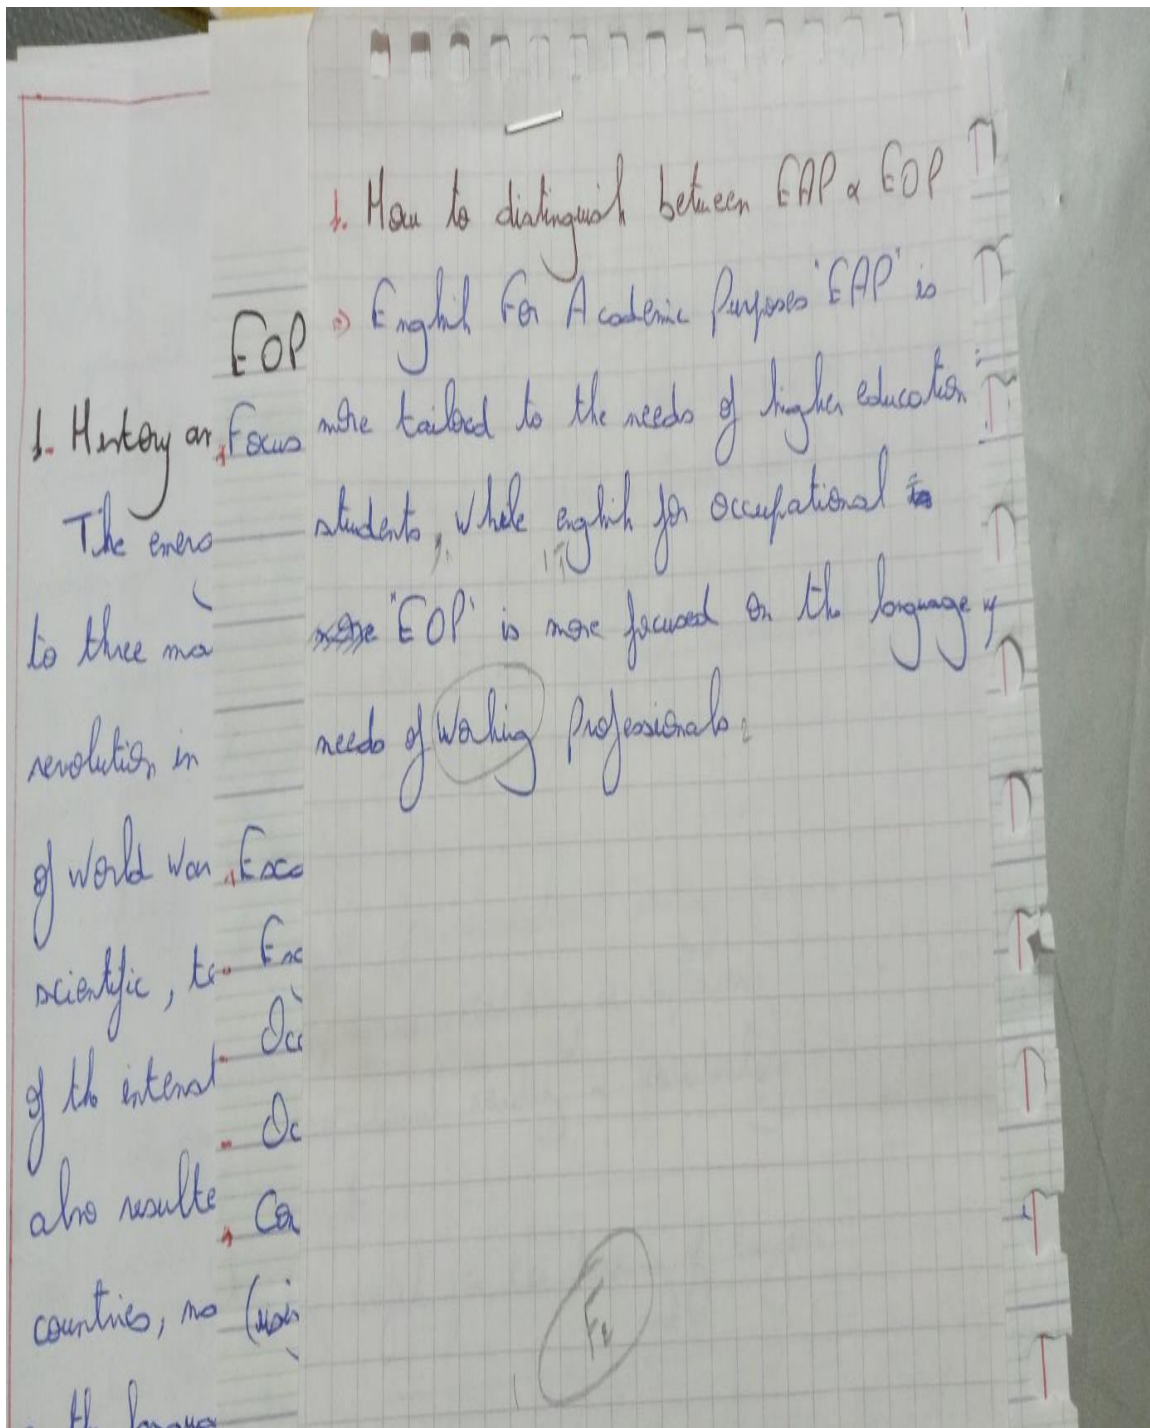 1. How to distinguish between EAP & EOP
=> English For Academic Purposes "EAP" is
more tailored to the needs of higher education
students, while english for occupational
"EOP" is more focused on the language
needs of working Professionals.
EOP
Focus
Exc
Occ
Oc
1. History an
The emerg
to three ma
revolution in
of world war
scientific, te
of the internat
also resulte
countries, no